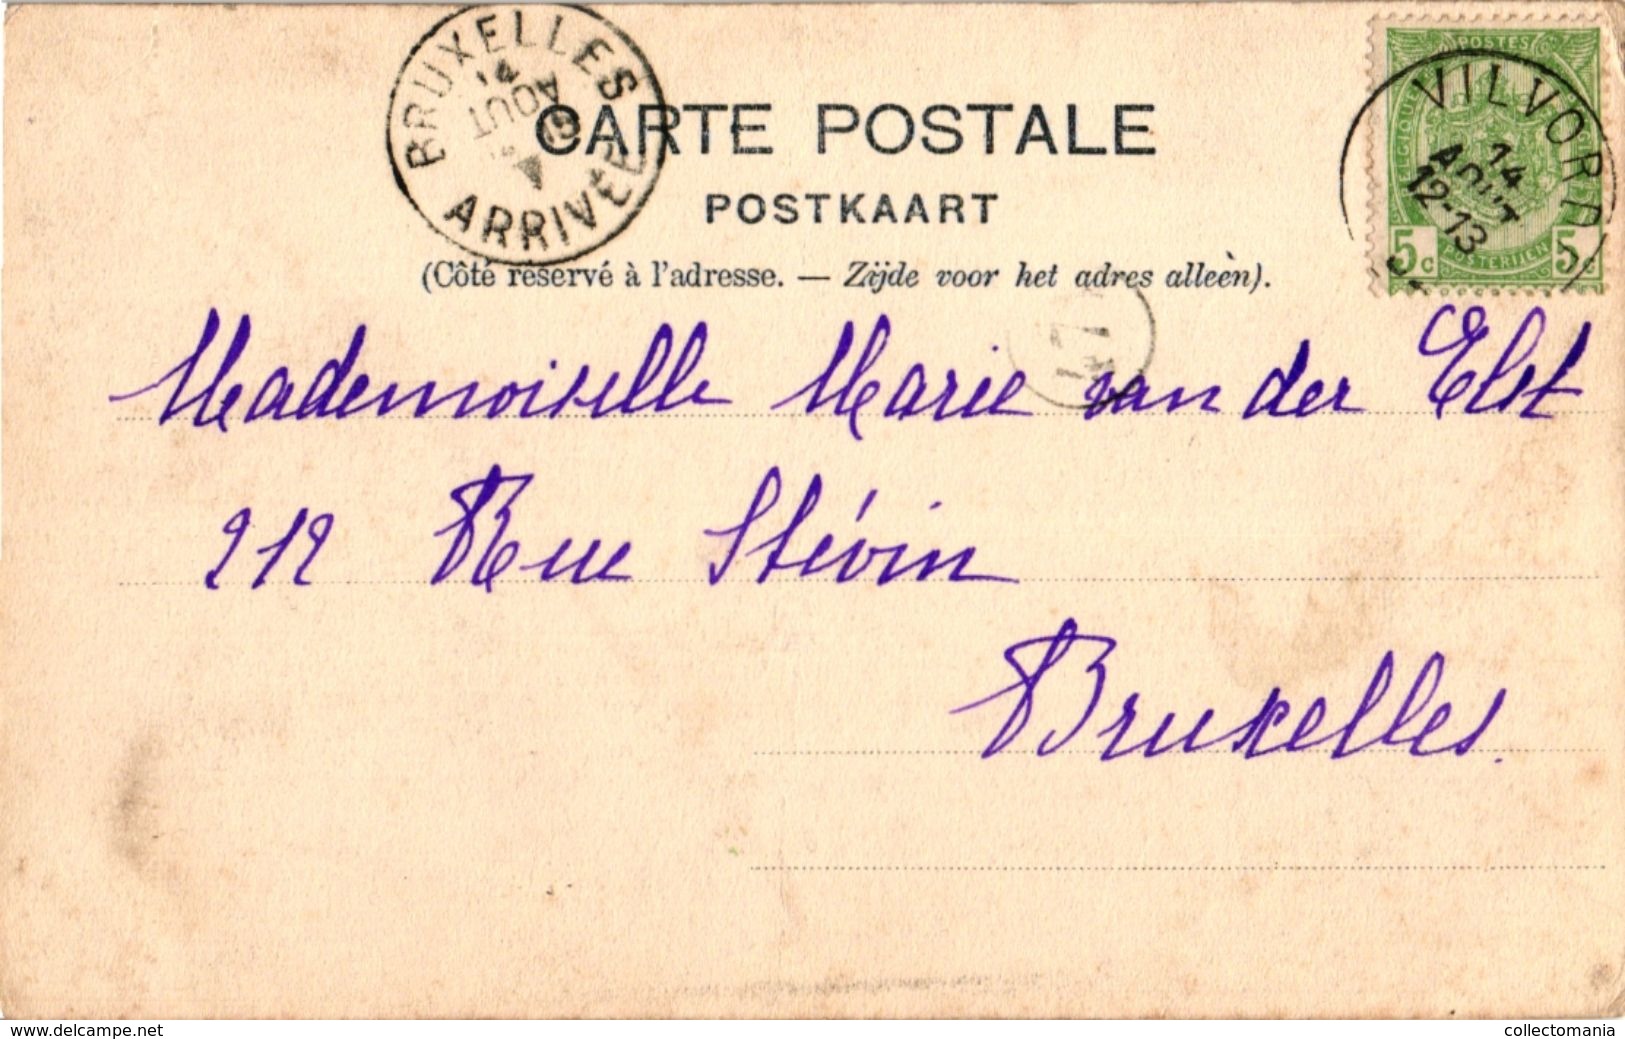 BRUXELLES
14
AOUT
ARRIVÉE
CARTE POSTALE
POSTKAART
(Côté réservé à l'adresse. — Zijde voor het adres alleèn).
POSTES
VILVORD
14
AOUT
12-13
5c POSTERIJEN 5c
Mademoiselle Marie van der Elst
212 Rue Stévin
Bruxelles.
www.delcampe.net
collectomania